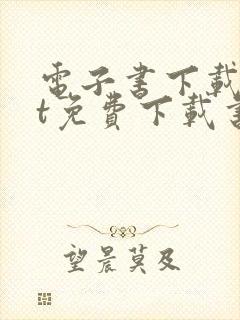 電子書下載
t免費下載
望晨莫及